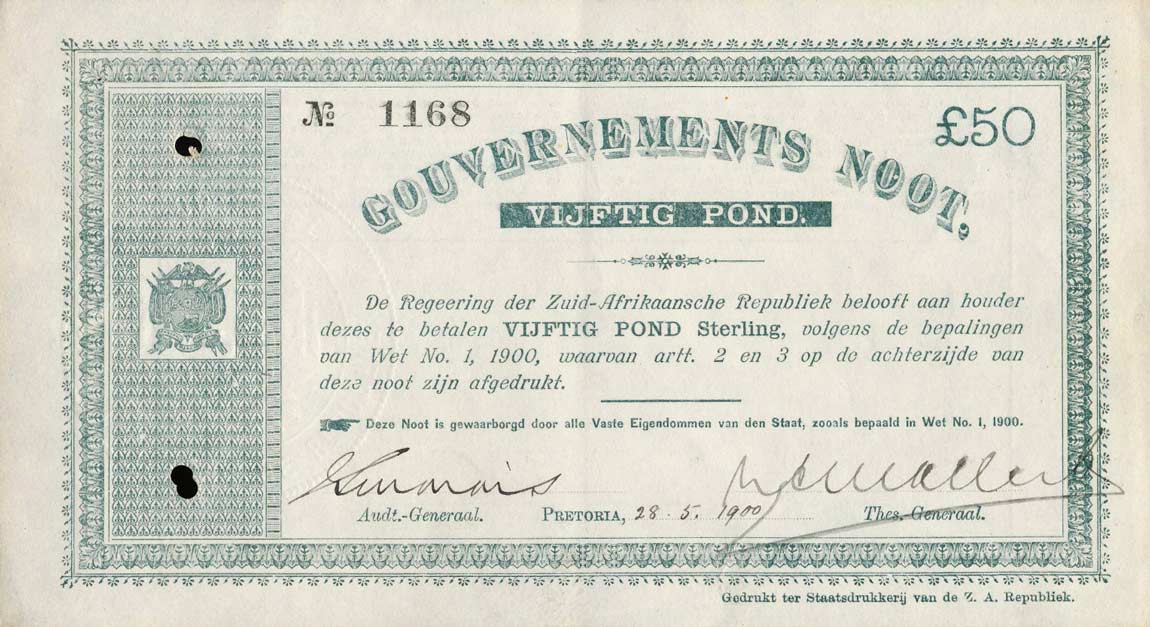 № 1168
£50
GOUVERNEMENTS NOOT,
VIJFTIG POND.
De Regeering der Zuid-Afrikaansche Republiek belooft aan houder
dezes te betalen VIJFTIG POND Sterling, volgens de bepalingen
van Wet No. 1, 1900, waarvan artt. 2 en 3 op de achterzijde van
deze noot zijn afgedrukt.
Deze Noot is gewaarborgd door alle Vaste Eigendommen van den Staat, zooals bepaald in Wet No. 1, 1900.
Audt.-Generaal. PRETORIA, 28. 5. 1900 Thes.-Generaal.
Gedrukt ter Staatsdrukkerij van de Z. A. Republiek.